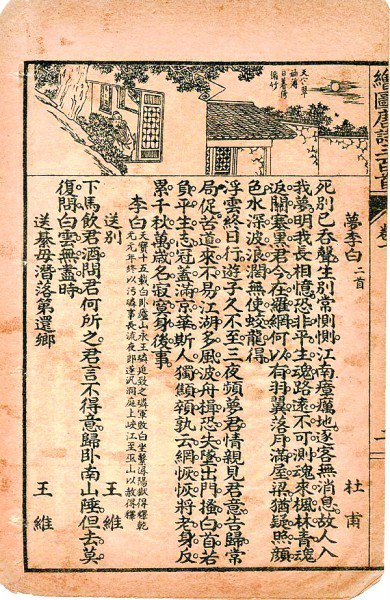 繪圖唐詩三百首 卷一
天寒翠
袖薄
日暮倚
脩竹
夢李白 二首 杜甫
死別已吞聲生別常惻惻江南瘴癘地逐客無消息故人入
我夢明我長相憶恐非平生魂路遠不可測魂來楓林青魂
返關塞黑君今在羅網何以有羽翼落月滿屋梁猶疑照顏
色水深波浪闊無使蛟龍得
浮雲終日行遊子久不至三夜頻夢君情親見君意告歸常
局促苦道來不易江湖多風波舟楫恐失墜出門搔白首若
負平生志冠蓋滿京華斯人獨顦顇孰云網恢恢將老身反
累千秋萬歲名寂寞身後事
李白 天寶十五載白臥廬山永王璘迫致之璘軍敗白坐繫潯陽獄得釋乾
元元年終以污璘事長流夜郎遂汎洞庭上峽江至巫山以赦得釋
送別 王維
下馬飲君酒問君何所之君言不得意歸臥南山陲但去莫
復問白雲無盡時
送綦毋潛落第還鄉 王維